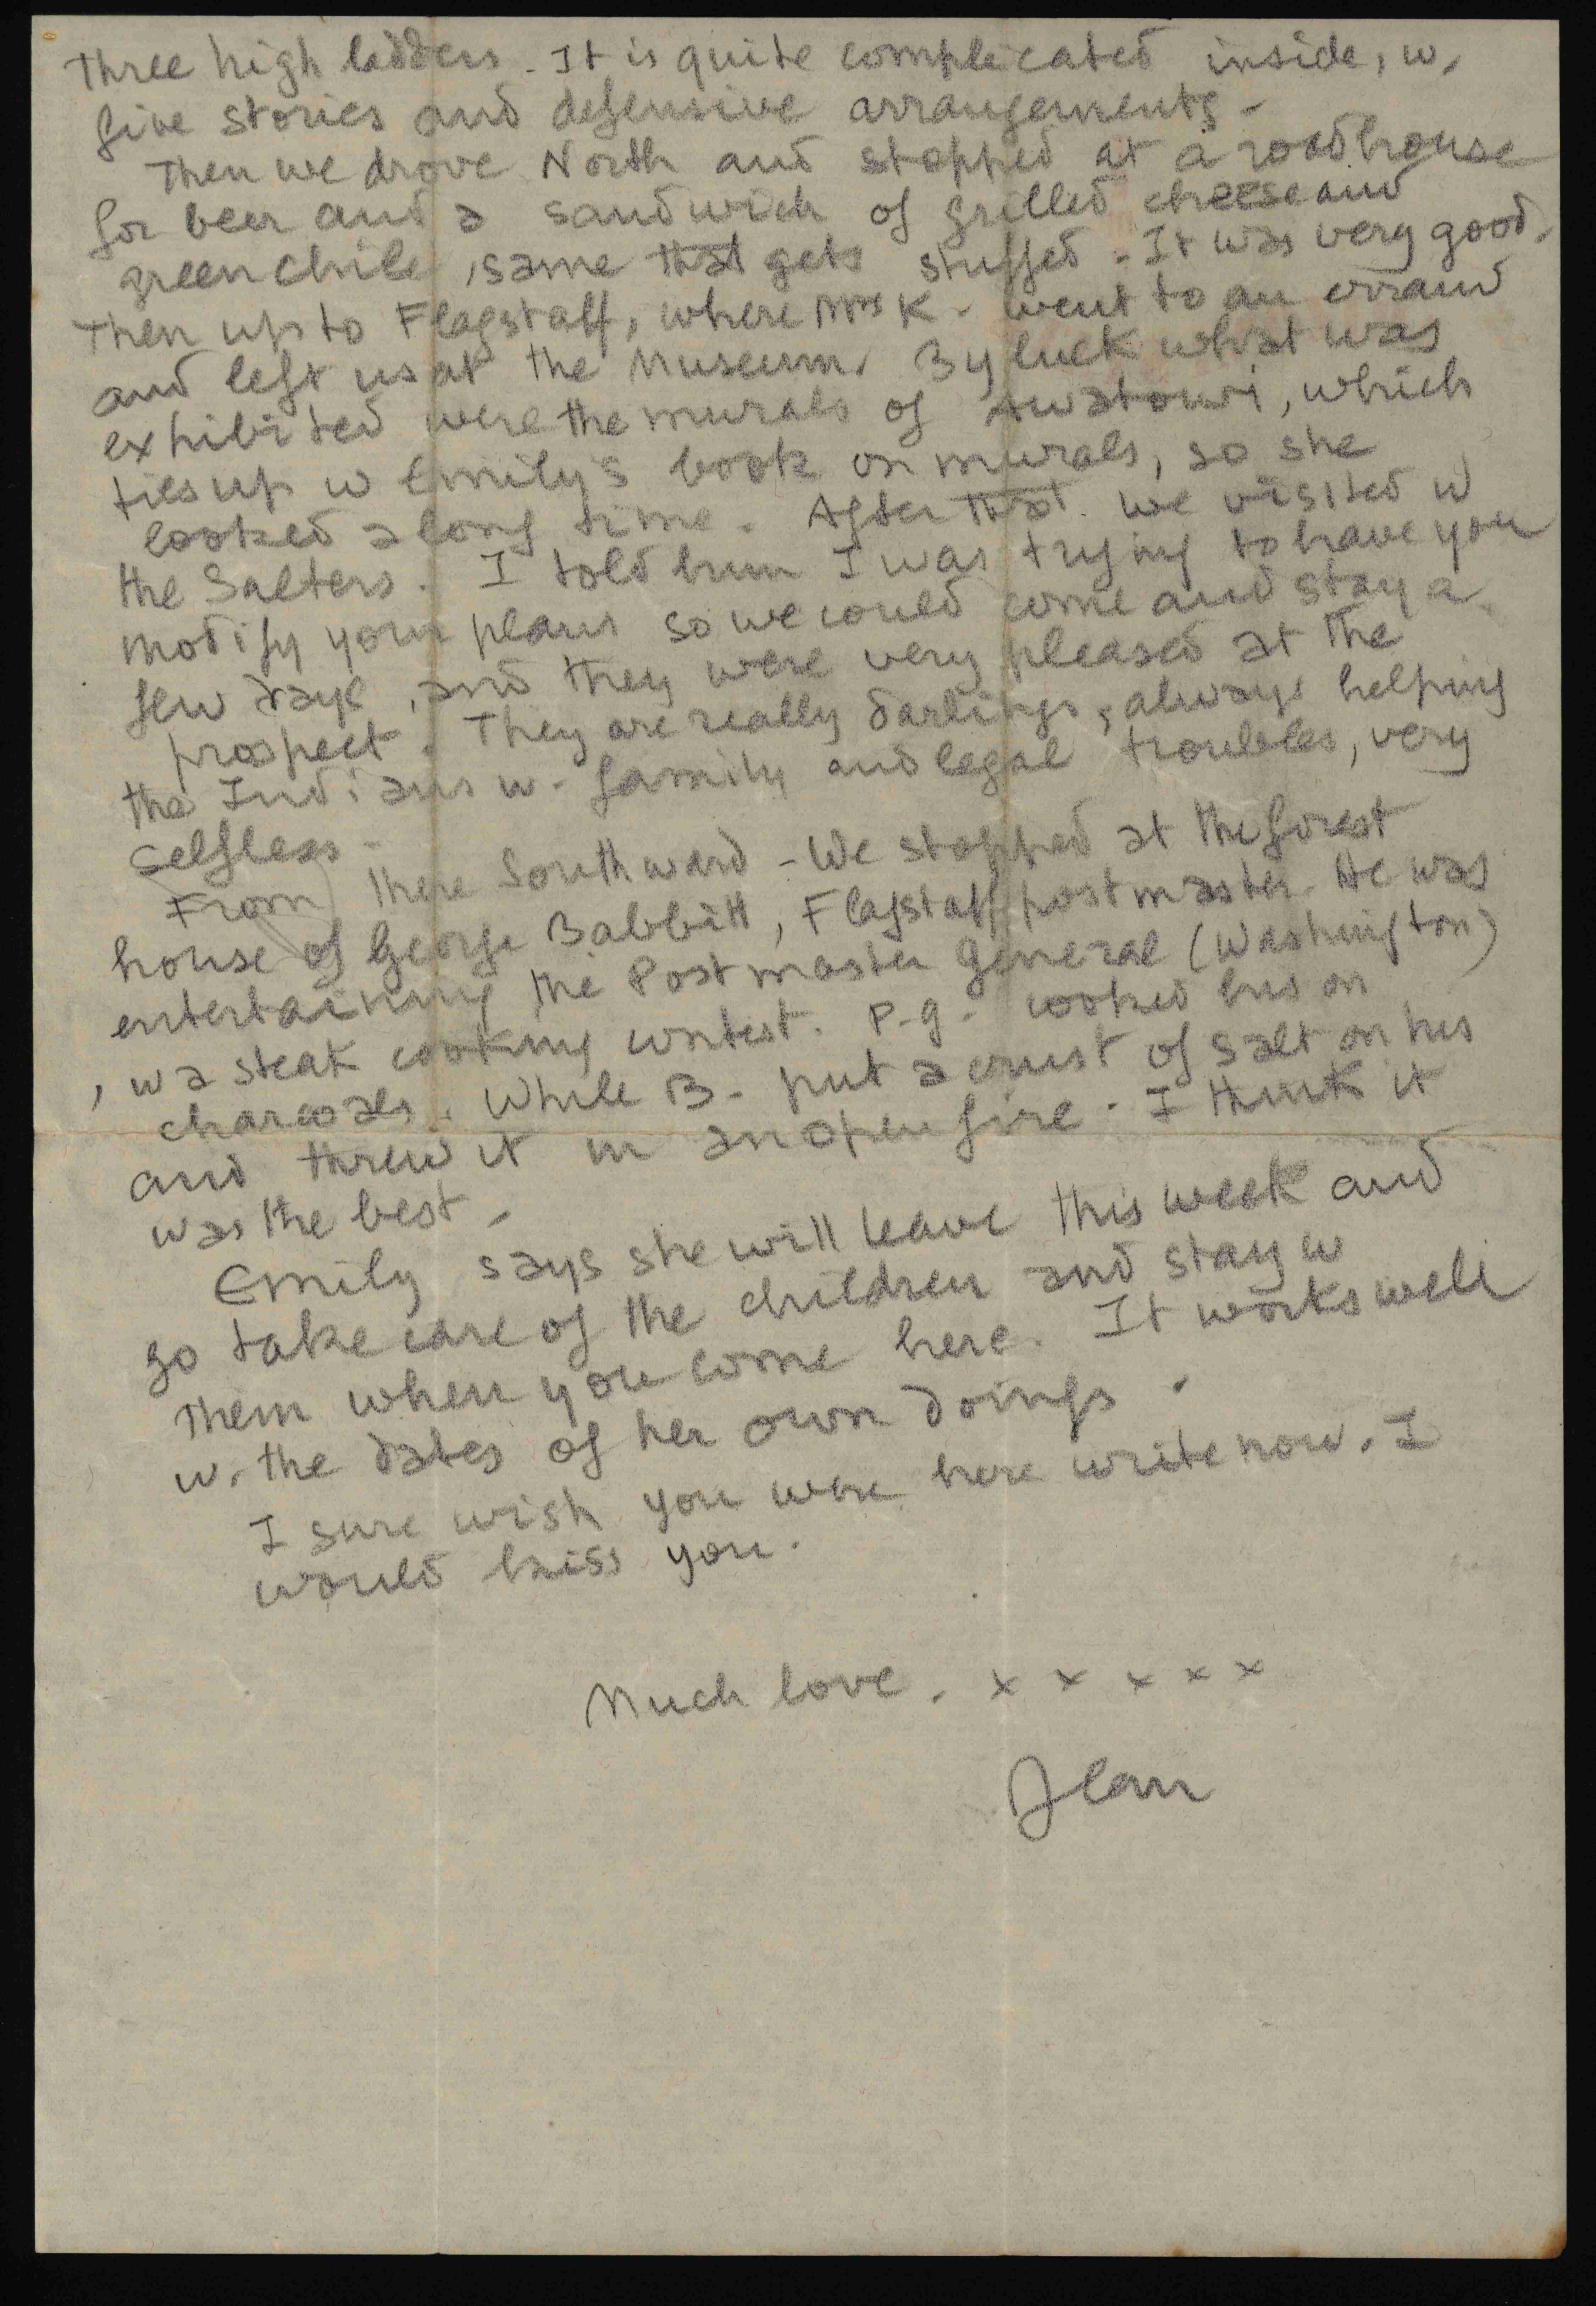 Three high ladders. It is quite complicated inside, w.
five stories and defensive arrangements.
Then we drove North and stopped at a roadhouse
for beer and a sandwich of grilled cheese and
green chile, same that gets stuffed. It was very good.
Then up to Flagstaff, where Mrs K. went to an errand
and left us at the Museum. By luck what was
exhibited were the murals of Awatowi, which
ties up w Emily's book on murals, so she
looked a long time. After that we visited w
the Salters. I told hum I was trying to have you
modify your plans so we could come and stay a
few days, and they were very pleased at the
prospect. They are really darlings, always helping
the Indians w. family and legal troubles, very
selfless.
From there Southward - We stopped at the forest
house of George Babbitt, Flagstaff postmaster. He was
entertaining the Postmaster General (Washington)
, w a steak cooking contest. P.g. cooked his on
charcoals. While B. put a crust of salt on his
and threw it in an open fire. I think it
was the best.
Emily says she will leave this week and
go take care of the children and stay w
them when you come here. It works well
w. the dates of her own doings.
I sure wish you were here write now. I
would kiss you.
Much love. x x x x x
Jean